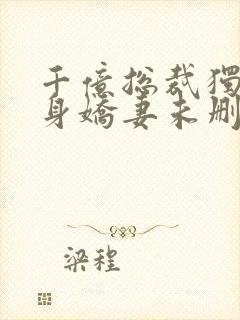 千億总裁獨
身嬌妻未删
梁程